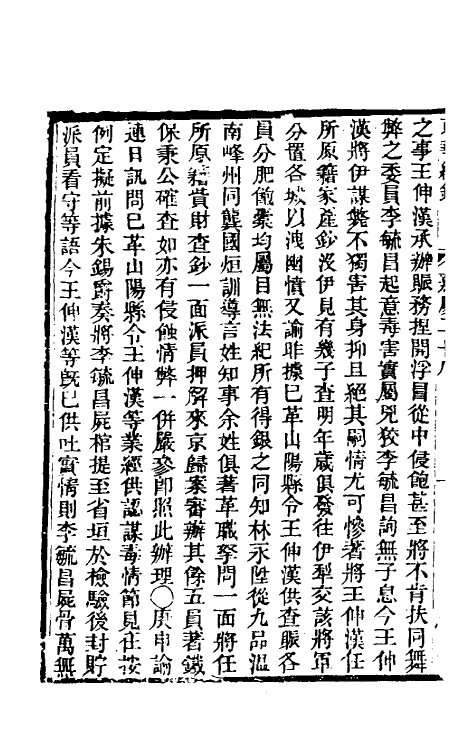 之事王伸漢承辦賑務捏開浮冒從中侵飽甚至將不肯扶同舞
弊之委員李毓昌起意毒害實屬兇狡李毓昌詢無子息今王伸
漢將伊謀斃不獨害其身抑且絕其嗣情尤可慘著將王伸漢任
所原籍家產鈔沒伊見有幾子查明年歲俱發往伊犁交該將軍
分置各城以洩幽憤又諭昨據已革山陽縣令王伸漢供查賑各
員分肥僚橐均屬目無法紀所有得銀之同知林永陞從九品溫
南峰州同龔國烜訓導言姓知事余姓俱著革職拏問一面將任
所原籍貲財查鈔一面派員押解來京歸案審辦其餘五員著鐵
保秉公確查如亦有侵蝕情弊一併嚴參卽照此辦理〇庚申諭
連日訊問已革山陽縣令王伸漢等業經供認謀毒情節見在按
例定擬前據朱錫爵奏將李毓昌屍棺提至省垣於檢驗後封貯
派員看守等語今王伸漢等旣已供吐實情則李毓昌屍骨萬無